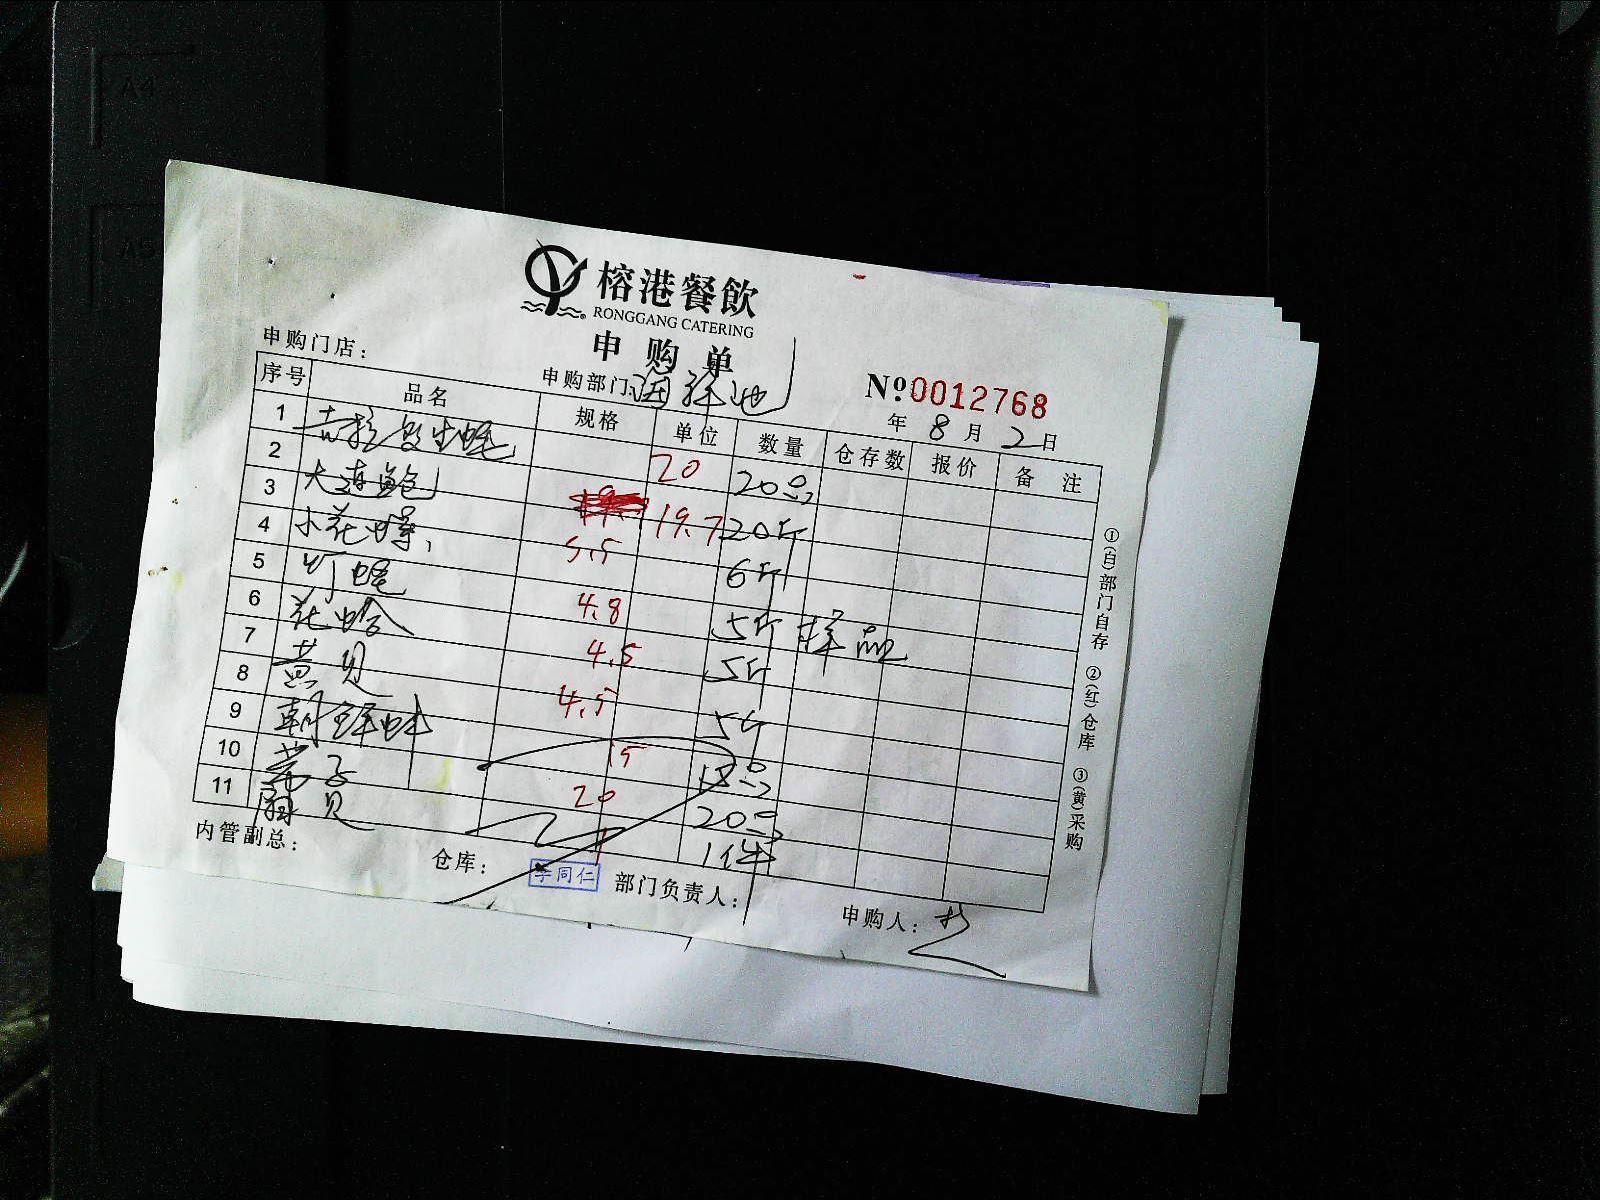 A4
A5
榕港餐飲
RONGGANG CATERING
申购单
申购门店：
申购部门：海鲜池
No0012768
年 8 月 2 日
序号 品名 规格 单位 数量 仓存数 报价 备注
1 20 20只
2 大连鲍 19.7 20斤
3 小花螺 5.5 6斤
4 4.8 5斤 样品
5 花蛤 4.5 5斤
6 黄贝 4.5 5斤
7 15
8 20 20只
9 1件
10
11
①(白)部门自存 ②(红)仓库 ③(黄)采购
内管副总：
仓库： 李同仁
部门负责人：
申购人：